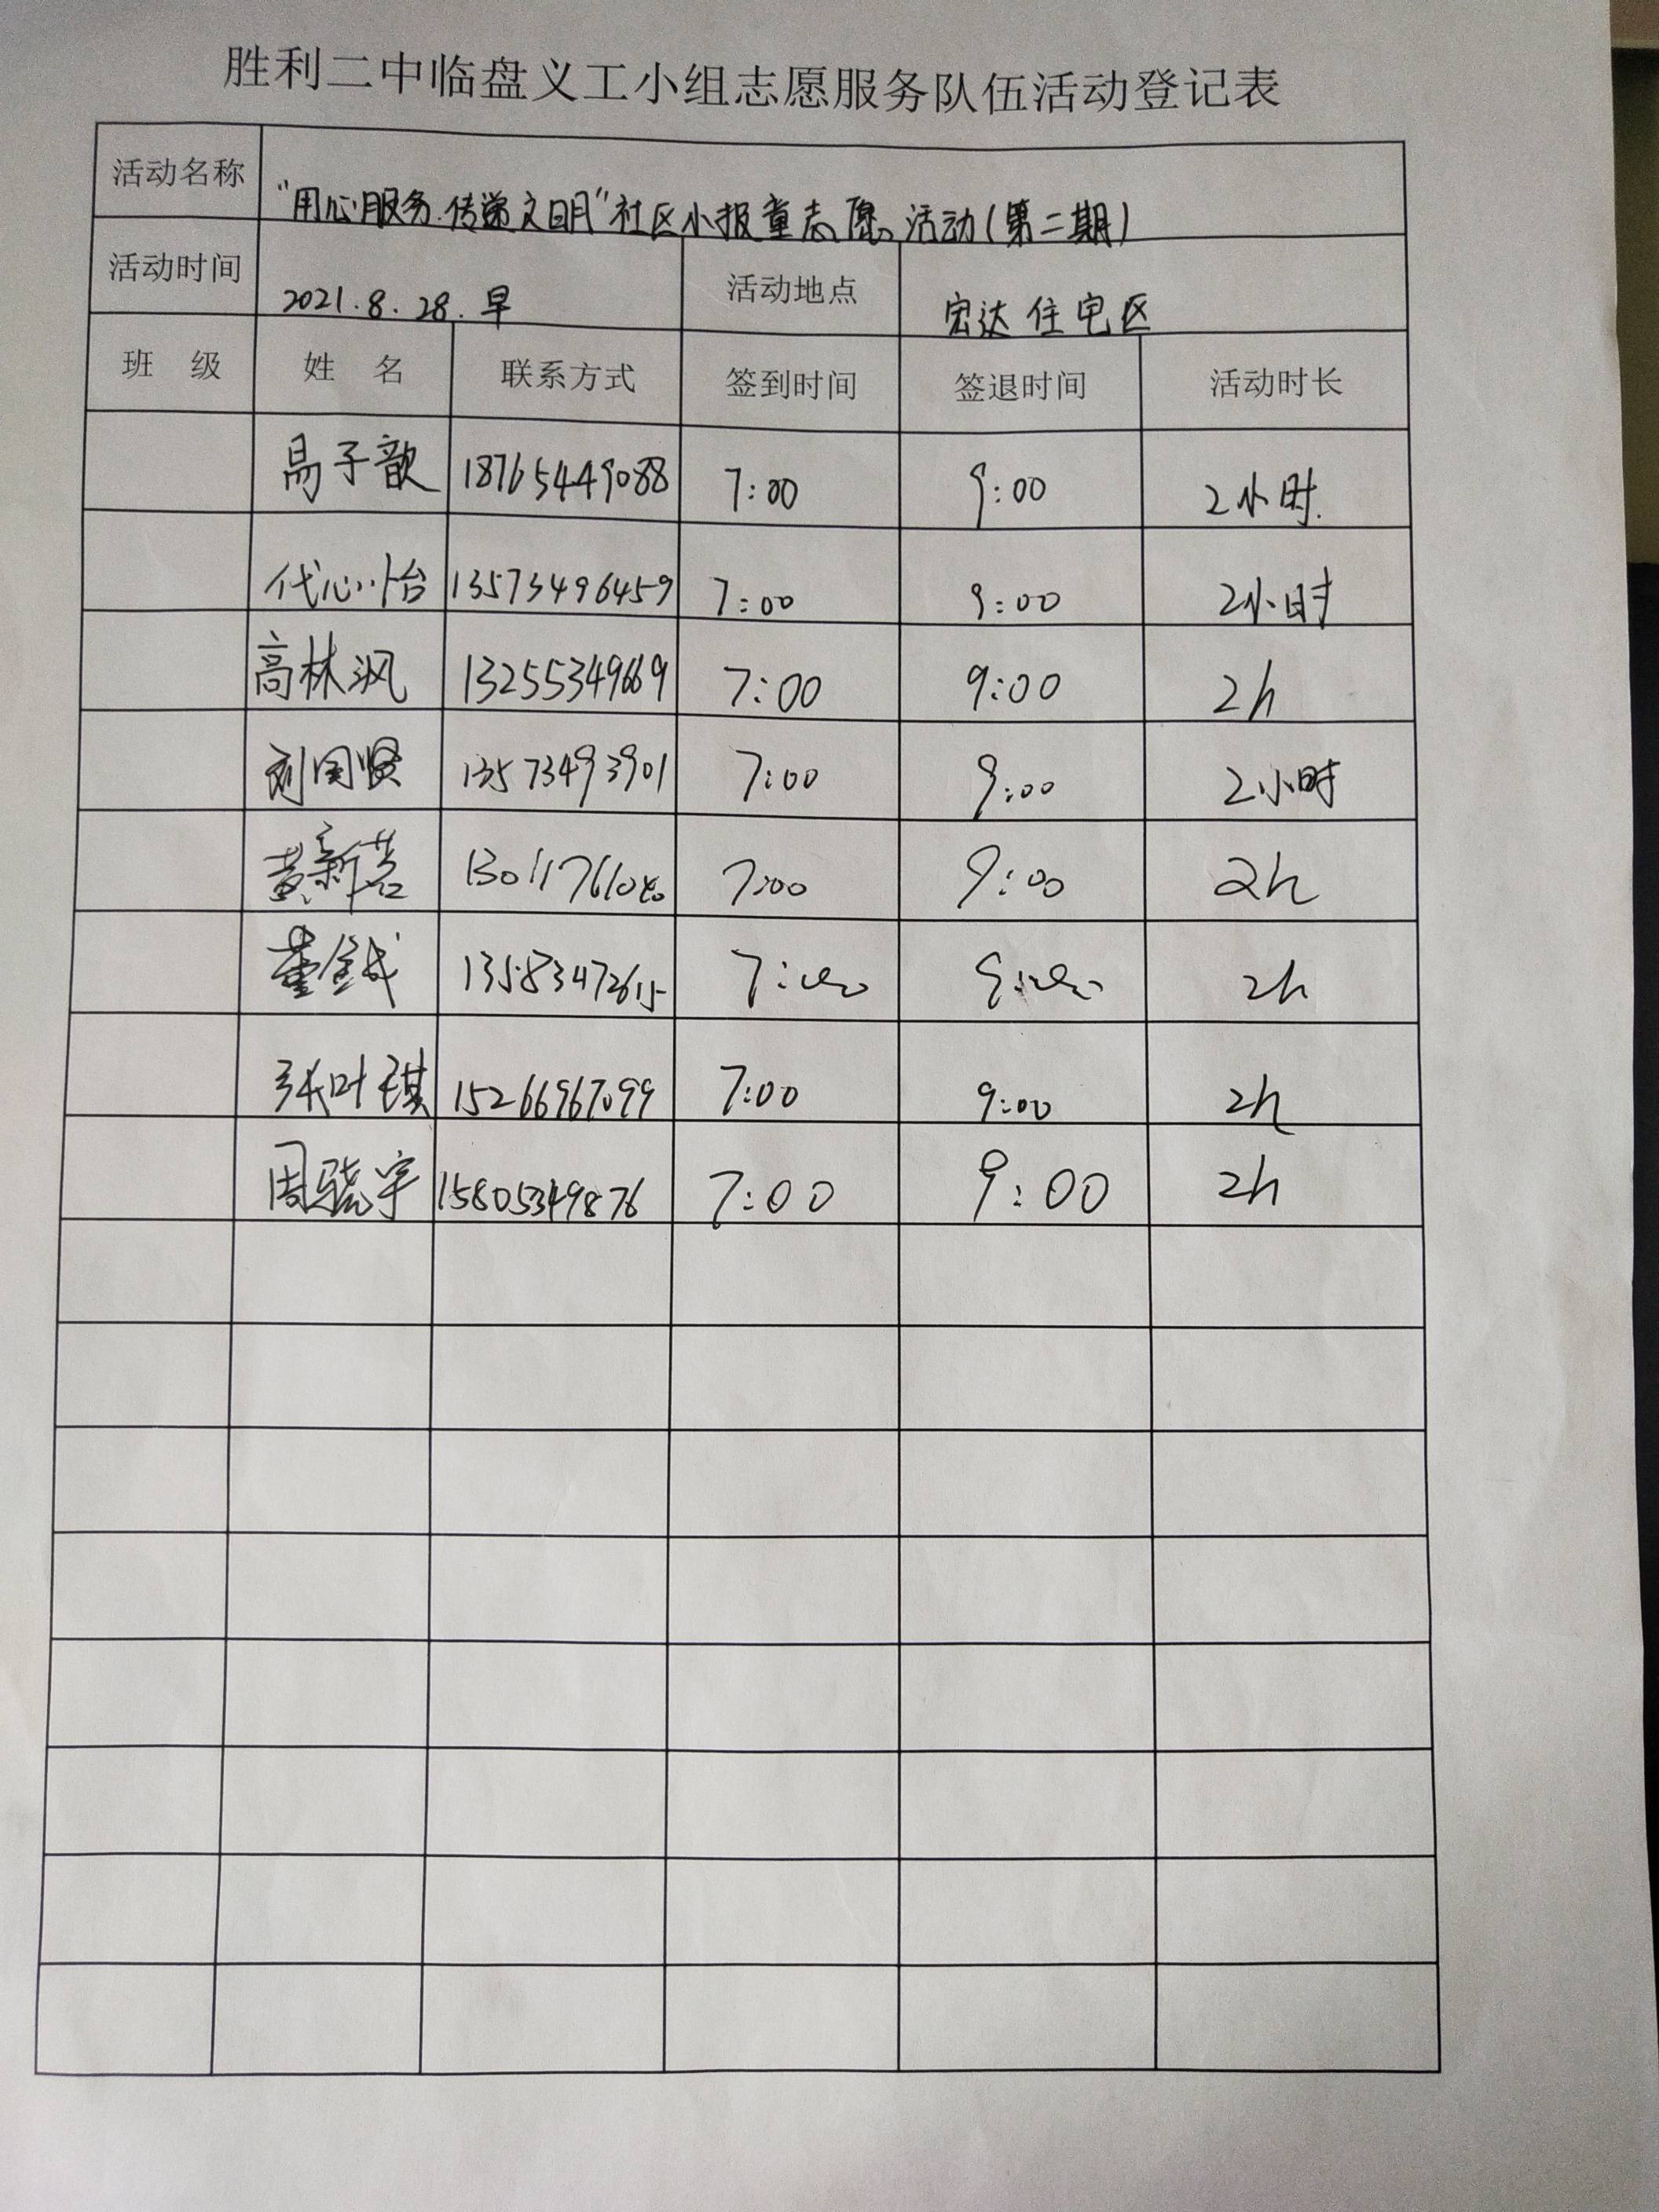 胜利二中临盘义工小组志愿服务队伍活动登记表
活动名称 "用心服务.传递文明"社区小报童志愿活动(第二期)
活动时间 2021.8.28.早 活动地点 宏达住宅区
班 级 姓 名 联系方式 签到时间 签退时间 活动时长
易子歆 18765449088 7:00 9:00 2小时.
代心怡 13573496459 7:00 9:00 2小时
高林沨 13255349669 7:00 9:00 2h
刘国贤 13573493901 7:00 9:00 2小时
黄新茗 7:00 9:00 2h
董 13583472615 7:00 9:00 2h
张叶琪 15266967099 7:00 9:00 2h
周骁宇 15805349876 7:00 9:00 2h